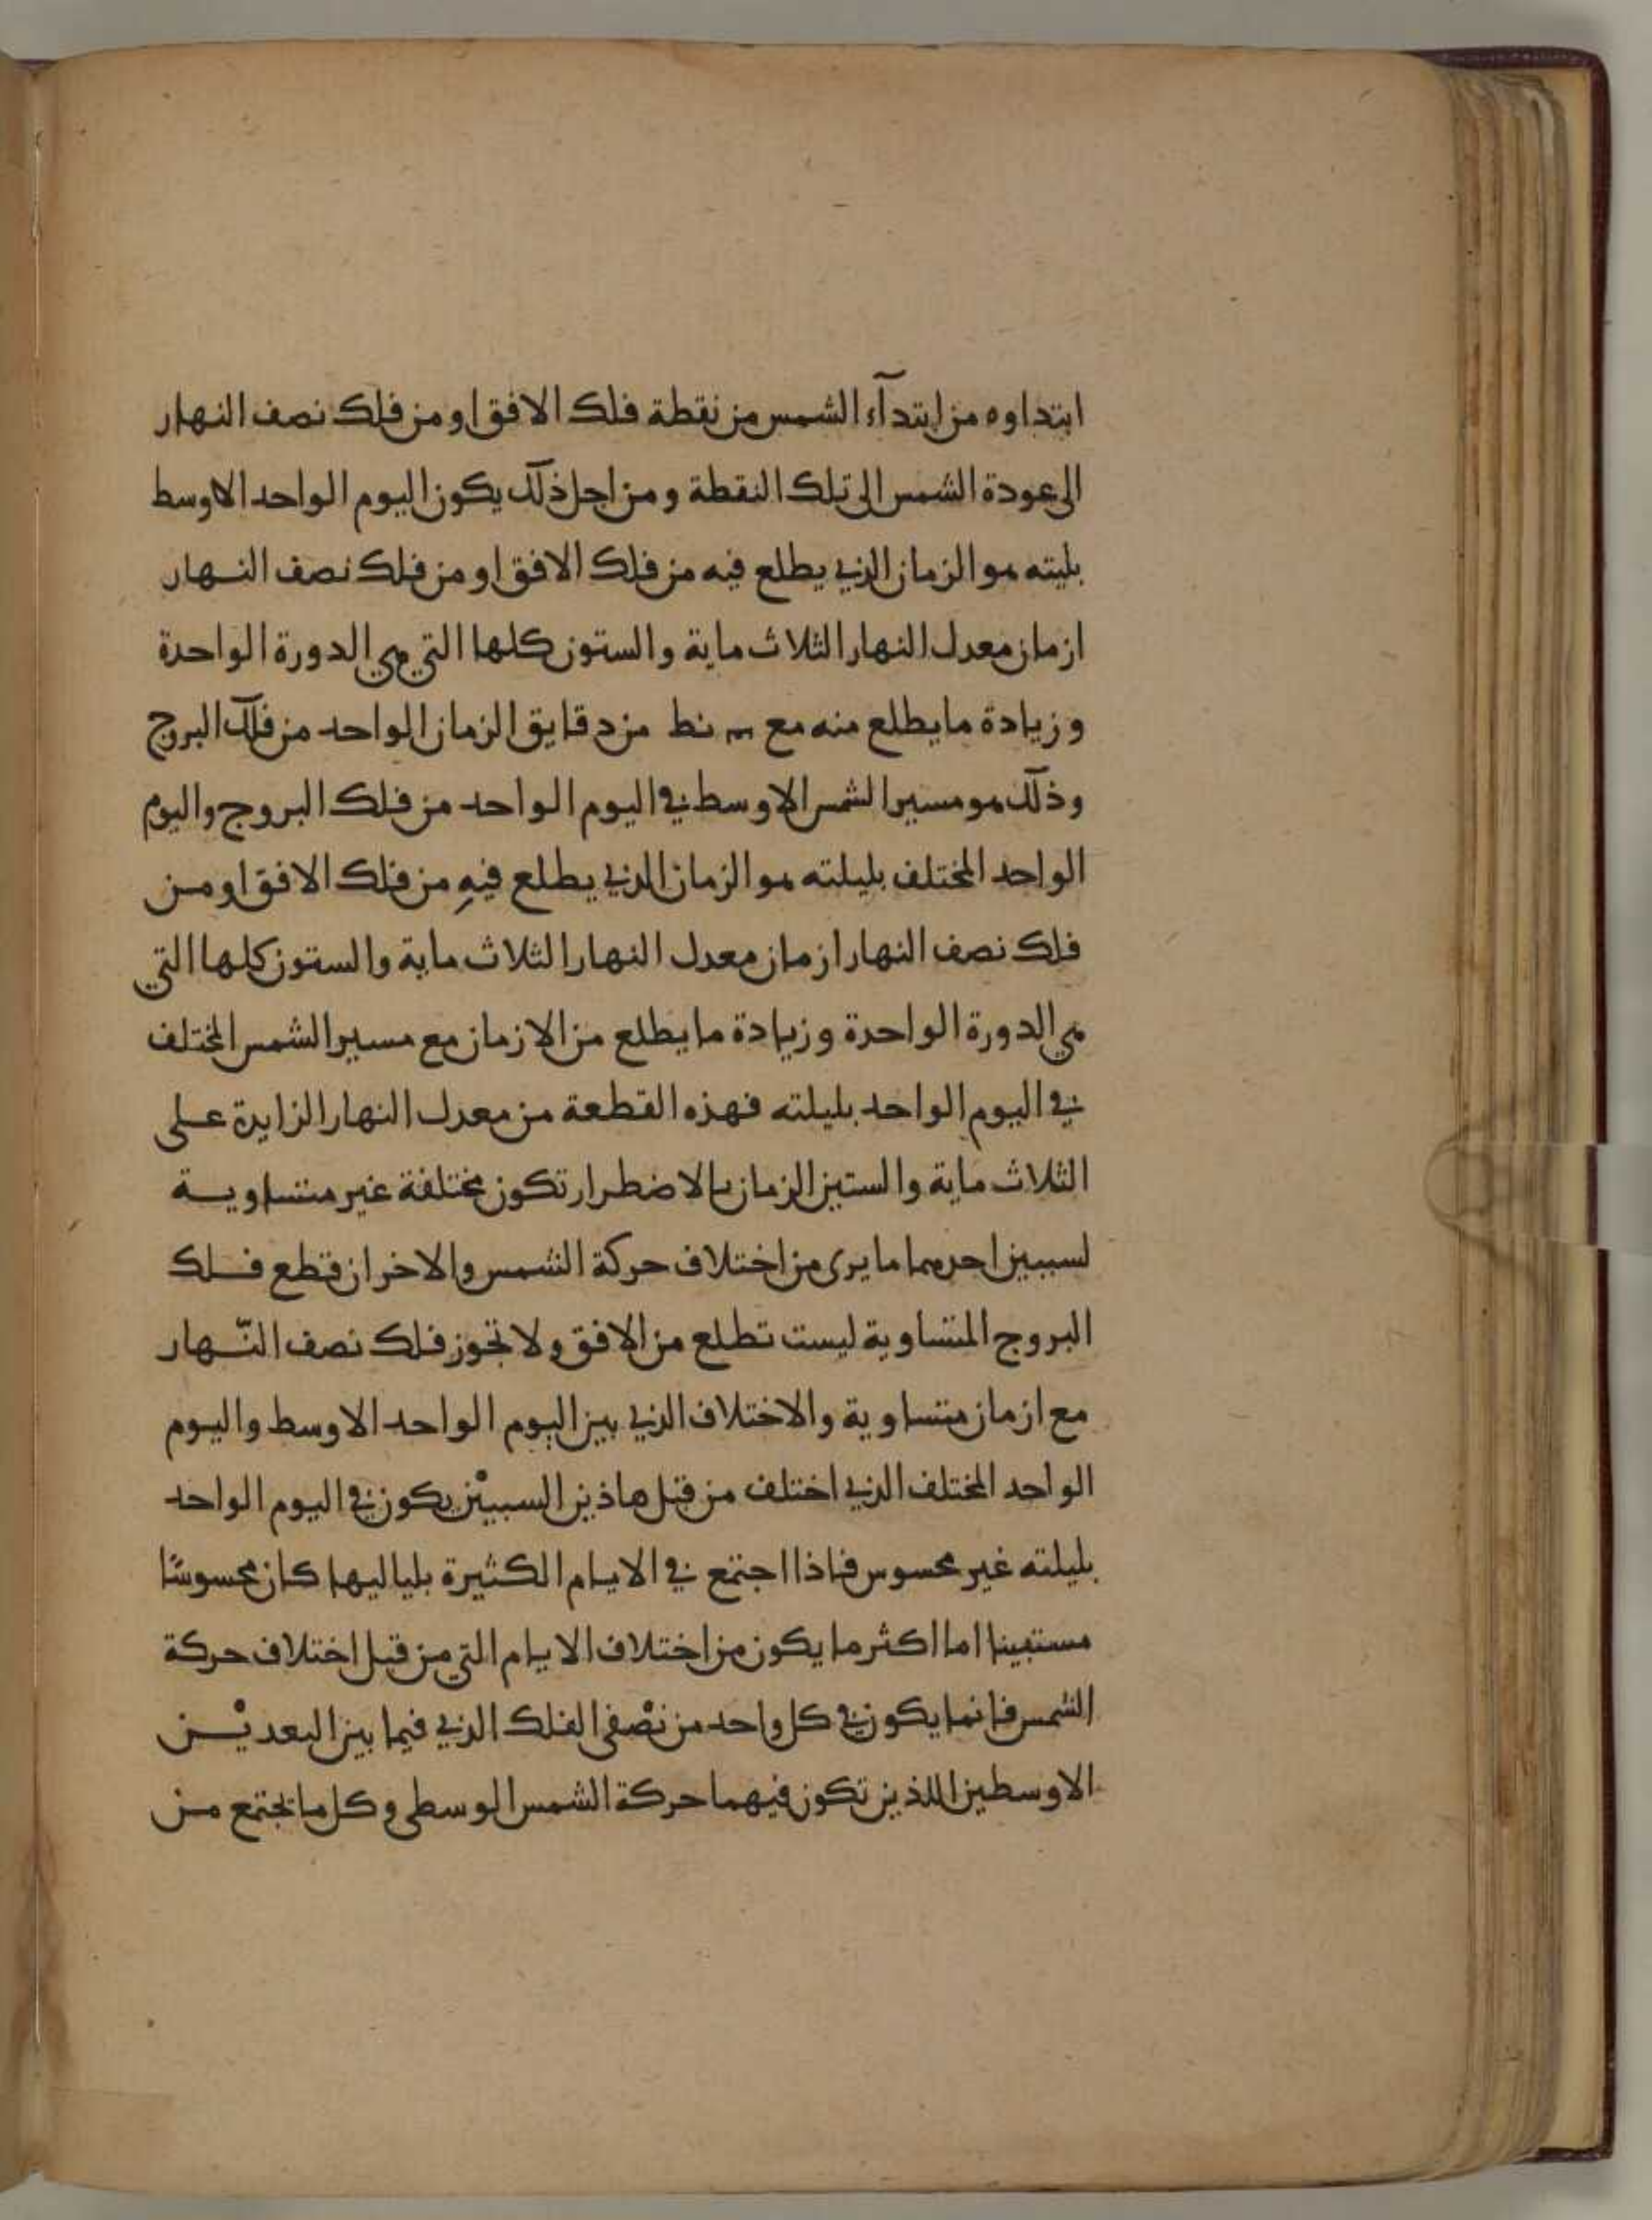 ابتداوه من ابتدآء الشمس من نقطة فلك الافق او من فلك نصف النهار
الى عودة الشمس الى تلك النقطة ومن اجل ذلك يكون اليوم الواحد الاوسط
بليته هو الزمان الذي يطلع فيه من فلك الافق او من فلك نصف النهار
ازمان معدل النهار الثلاث ماية والستون كلها التي هي الدورة الواحدة
وزيادة ما يطلع منه مع نط من دقايق الزمان الواحد من فلك البرج
وذلك هو مسير الشمس الاوسط في اليوم الواحد من فلك البروج واليوم
الواحد المختلف بليلته هو الزمان الذي يطلع فيه من فلك الافق او من
فلك نصف النهار ازمان معدل النهار الثلاث ماية والستون كلها التي
هي الدورة الواحدة وزيادة ما يطلع من الازمان مع مسير الشمس المختلف
في اليوم الواحد بليلته فهذه القطعة من معدل النهار الزايدة على
الثلاث ماية والستين الزمان بالاضطرار تكون مختلفة غير متساوية
لسببين احدهما ما يرى من اختلاف حركة الشمس والاخر ان قطع فلك
البروج المتساوية ليست تطلع من الافق ولا تجوز فلك نصف النّهار
مع ازمان متساوية والاختلاف الذي بين اليوم الواحد الاوسط واليوم
الواحد المختلف الذي اختلف من قبل هاذين السببيْن يكون في اليوم الواحد
بليلته غير محسوس فاذا اجتمع في الايام الكثيرة بلياليها كان محسوسًا
مستبينا اما اكثر ما يكون من اختلاف الايام التي من قبل اختلاف حركة
الشمس فانما يكون في كل واحد من نصْفى الفلك الذي فيما بين البعديْن
الاوسطين اللذين تكون فيهما حركة الشمس الوسطى وكل ما يجتمع من